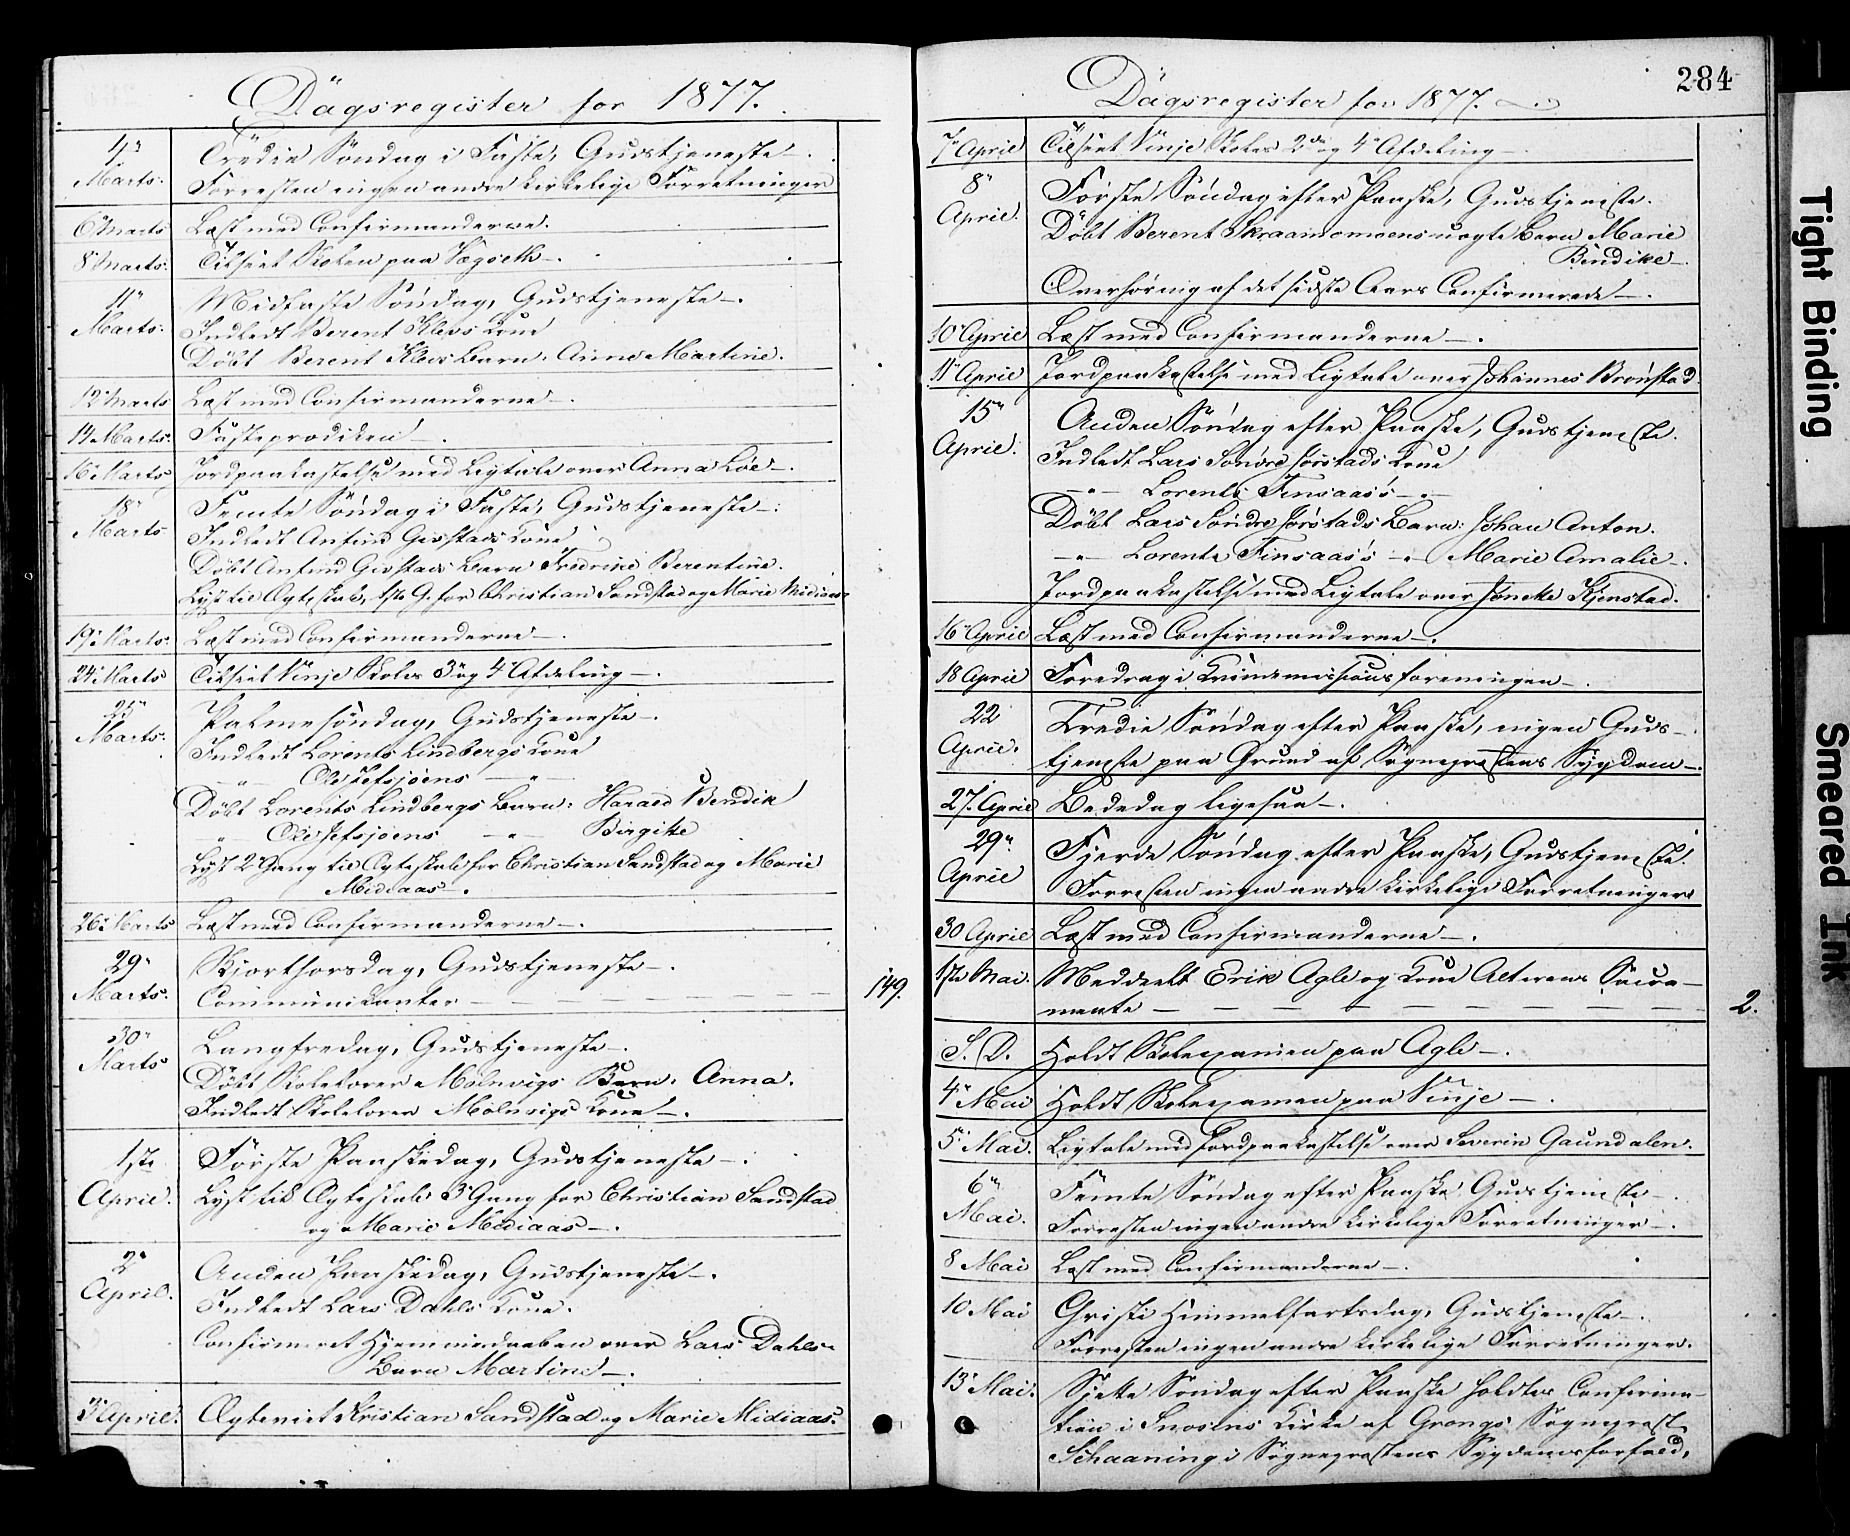 Dagsregister for 1877.
4de Marts. Tredie Søndag i Faste, Gudstjeneste.
Forresten ingen andre kirkelige Forretninger
6 Marts Læst med Confirmanderne.
8 Marts. Tilseet Skolen paa Vægseth.
11 Marts. Midfaste Søndag, Gudstjeneste.
Indledt Berent Klevs Kone
Døbt Berent Klevs Barn: Anne Martine.
12 Marts Læst med Confirmanderne.
14 Marts. Fasteprædiken.
16 Marts Jordpaakastelse med Ligtale over Anna Løe.
18 Marts Femte Søndag i Faste, Gudstjeneste.
Indledt Anfind Gifstads Kone
Døbt Anfind Gifstads Barn Fredrine Berentine.
Lyst til Ægteskab, 1ste G. for Christian Sandstad og Marie Midiaas
19 Marts. Læst med Confirmanderne.
24 Marts Tilseet Vinje Skoles 3 og 4 Afdeling.
25 Marts. Palmesøndag, Gudstjeneste.
Indledt Lorents Lindbergs Kone
" Ole Jefsjøens "
Døbt Lorents Lindbergs Barn: Harald Bendik
" Ole Jefsjøens " Birgitte
Lyst 2 Gang til Ægteskab for Christian Sandstad og Marie
Midiaas.
26 Marts Læst med Confirmanderne.
29 Marts. Skjærthorsdag, Gudstjeneste.
Communikanter 149.
30 Marts Langfredag, Gudstjeneste.
Døbt Skolelærer Mølnvigs Barn: Anna.
Indledt Skolelærer Mølnvigs Kone.
1ste April. Første Paaskedag, Gudstjeneste.
Lyst til Ægteskab 3 Gang for Christian Sandstad
og Marie Midiaas.
2 April. Anden Paaskedag, Gudstjeneste.
Indledt Lars Dahls Kone.
Confirmeret Hjemmedaaben over Lars Dahls
Barn Martine.
3 April. Ægteviet Kristian Sandstad og Marie Midiaas.
284
Dagsregister for 1877.
7 April Tilseet Vinje Skoles 2den og 4 Afdeling
8 April. Første Søndag efter Paaske, Gudstjeneste.
Døbt Berent Skraamomoens uægte Barn Marie
Bendike.
Overhøring af det sidste Aars Confirmerede.
10 April Læst med Confirmanderne.
11 April Jordpaakastelse med Ligtale over Johannes Brønstad
15 April. Anden Søndag efter Paaske, Gudstjeneste.
Indledt Lars Søndre Jørstads Kone
" Lorents Finsaas's "
Døbt Lars Søndre Jørstads Barn: Johan Anton.
" Lorents Finsaas's " Marie Amalie.
Jordpaakastelse med Ligtale over Kjenstad.
16 April Læst med Confirmanderne.
18 April Foredrag i Kvindemissionsforeningen.
22 April. Tredie Søndag efter Paaske, ingen Guds-
tjeneste paa Grund af Sognepræstens Sygdom.
27. April Bededag ligesaa.
29 April Fjerde Søndag efter Paaske, Gudstjeneste.
Forresten ingen andre kirkelige Forretninger
30 April Læst med Confirmanderne.
1ste Mai. Meddeelt Erik Agle og Kone Alterens Sacra-
mente 2.
S. D. Holdt Skoleexamen paa Agle.
4 Mai Holdt Skoleexamen paa Vinje.
5 Mai. Ligtale med Jordpaakastelse over Severin Gaundalen.
6 Mai. Femte Søndag efter Paaske Gudstjeneste.
Forresten ingen andre kirkelige Forretninger.
8 Mai Læst med Confirmanderne.
10 Mai Christi Himmelfartsdag, Gudstjeneste.
Forresten ingen andre kirkelige Forretninger.
13 Mai. Sjette Søndag efter Paaske holdtes Confirma-
tion i Snosens Kirke af Grongs Sognepræst
Schaaning i Sognepræstens Sygdomsforfald,
Tight Binding
Smeared Ink